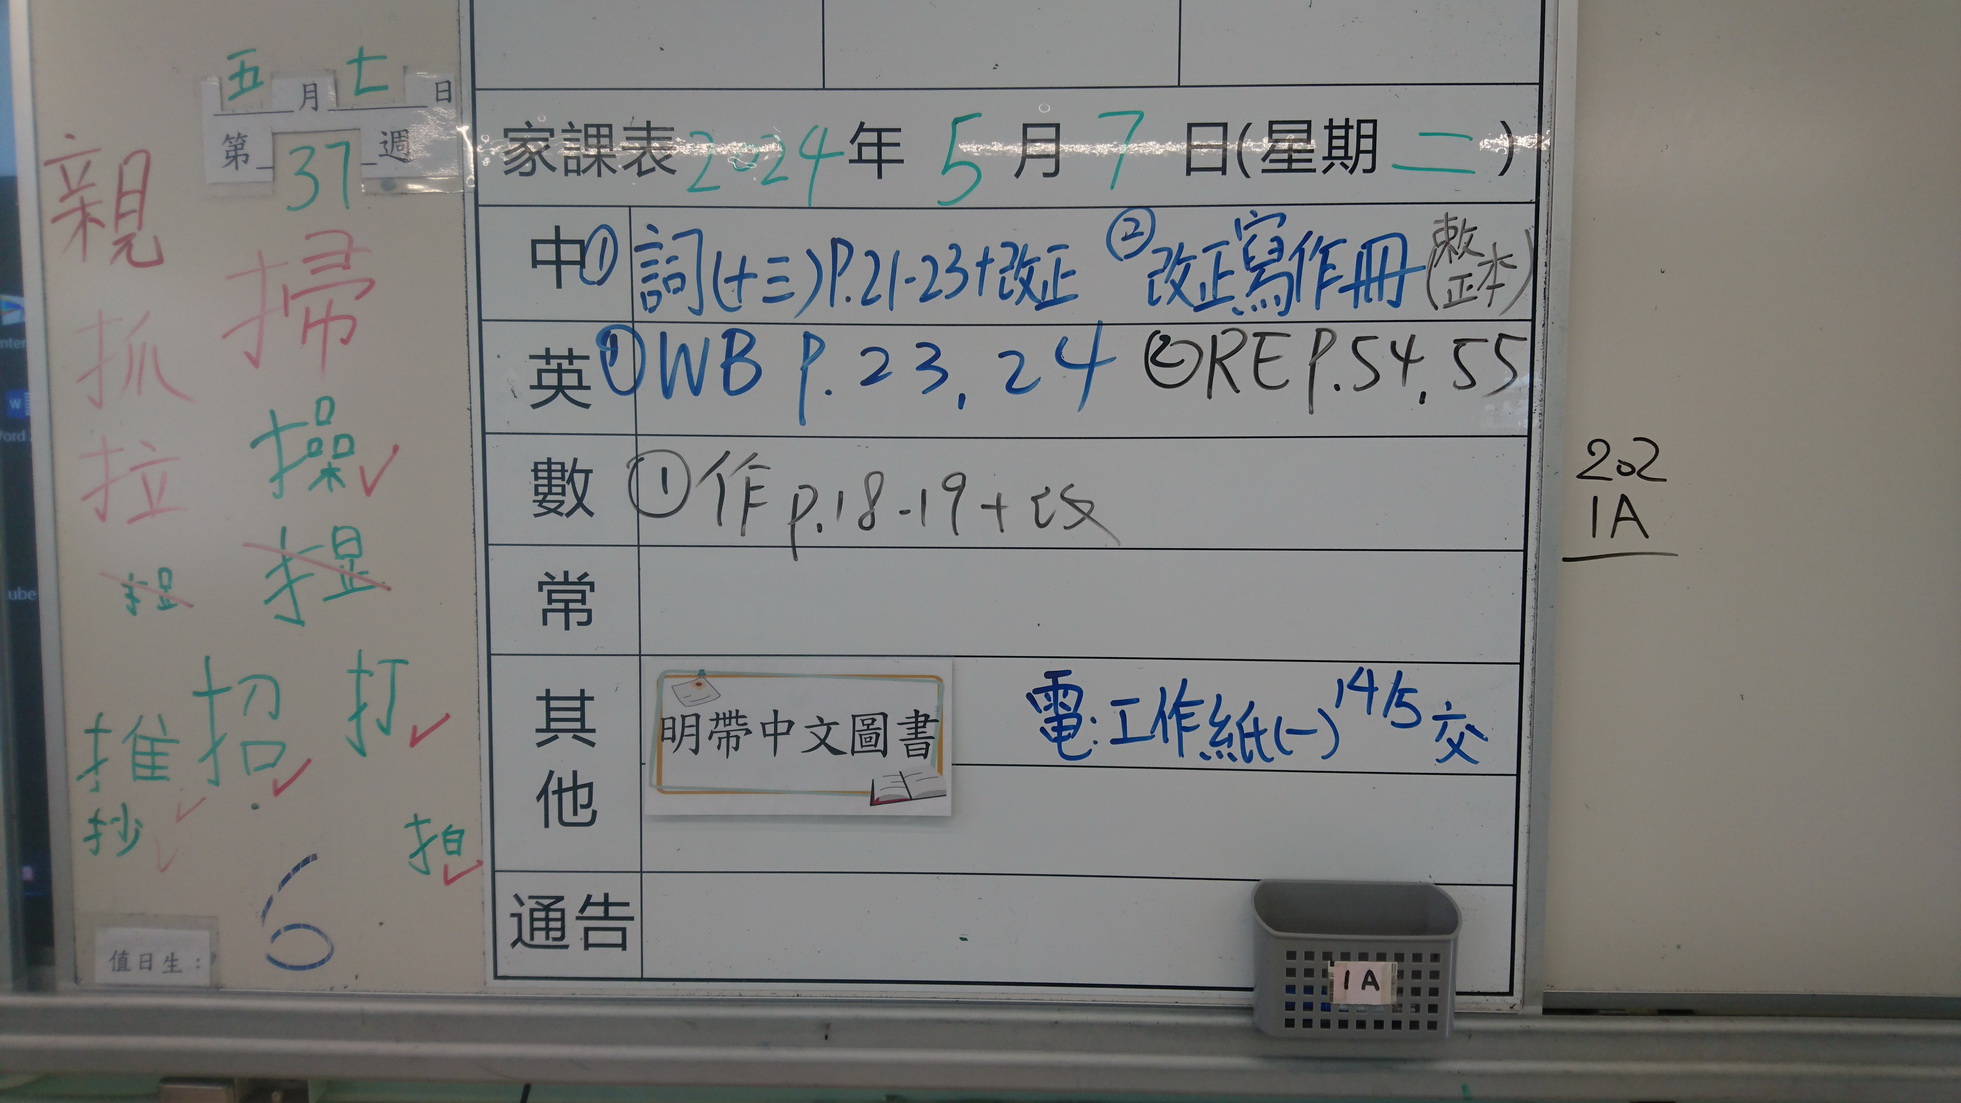 五月七日
第37週
親
掃
抓
操
拉
招
打
推
抄
拍
6
值日生：
家課表2024年5月7日(星期二)
中①詞(十三)P.21-23+改正 ②改正寫作冊(整本)
英①WB P.23,24 ②RE P.54,55
數①作p.18-19+改
常
其他
明帶中文圖書
電:工作紙(一)14/5交
通告
1A
202
1A